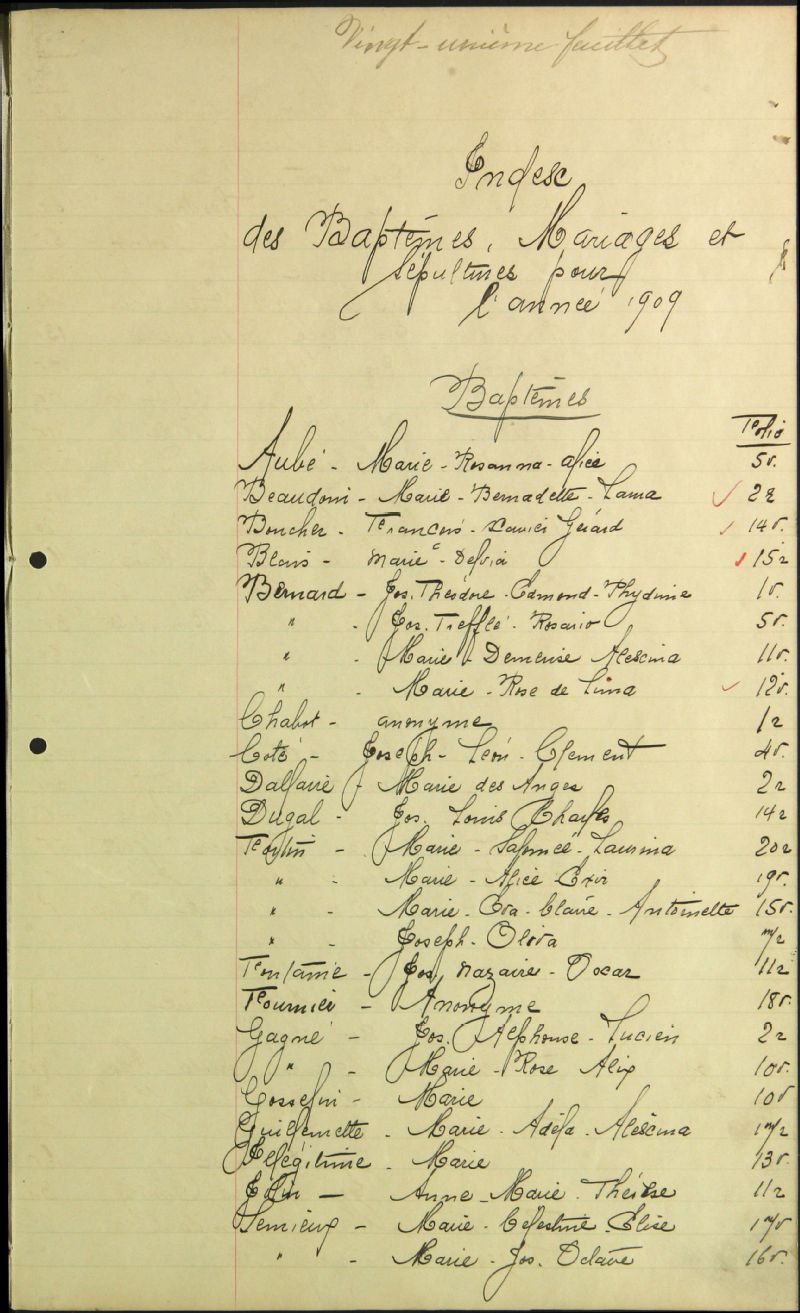 Vingt-unième feuillet
Index
des Baptêmes, Mariages et
Sépultures pour
l'année 1909
Baptêmes
Folio
Aubé - Marie - Rosanna - Alice 5v.
Beaudoin - Marie - Bernadette - Laura 2r
Boucher - François - Xavier Gérard 14v.
Blais - Marie - Delvia 15r
Bernard - Jos. Théodore - Edmond - Phydime 1v.
" - Jos. Trefflé - Rosario 5v.
" - Marie - Demerise Alexina 11v.
" - Marie - Rose de Lima 12v.
Chabot - anonyme 1r
Coté - Joseph - Léon - Clement 4v.
Dallaire - Marie des Anges 2r
Dugal - Jos. Louis Charles 14r
Fortin - Marie - Salomée - Laurina 20r
" - Marie - Alice 19v.
" - Marie - Eva - Claire - Antoinette 15v.
" - Joseph - Oliva 7r
Fontaine - Jos. Nazaire - Oscar 11r
Fournier - Anonyme 18v.
Gagné - Jos. Alphonse - Lucien 2r
" - Marie - Rose Alix 10v.
Gosselin - Marie 10v
Guillemette - Marie - Adéla - Alexina 17r
Illégitime - Marie 13v.
- Anne - Marie - Thérèse 11r
Lemieux - Marie - Celestine - Elise 17v
" - Marie - Jos. Octave 16v.